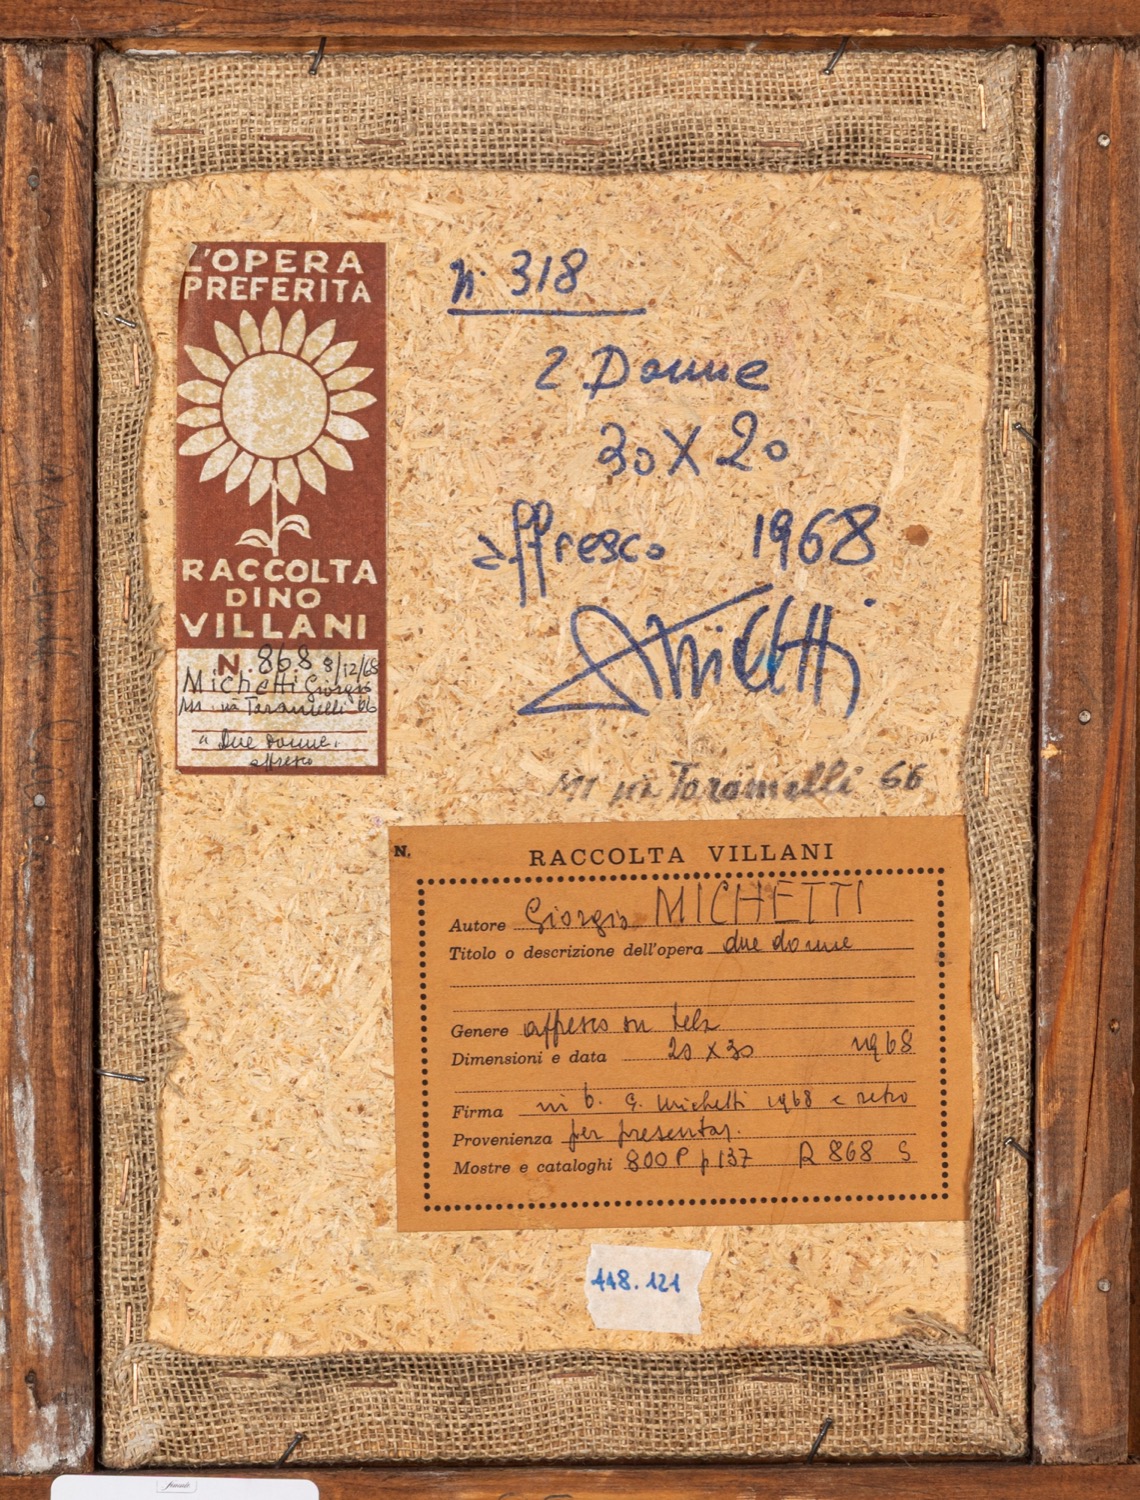 L'OPERA
PREFERITA
RACCOLTA
DINO
VILLANI
N. 868 8/12/68
Michetti Giorgio
MI via Taramelli 66
"Due donne"
affresco
n. 318
2 Donne
30 X 20
affresco 1968
Michetti
MI via Taramelli 66
N.
RACCOLTA VILLANI
Autore Giorgio MICHETTI
Titolo o descrizione dell'opera due donne
Genere affresco su tela
Dimensioni e data 20 x 30 1968
Firma in b. G. Michetti 1968 e retro
Provenienza per presentaz.
Mostre e cataloghi 800 P p 137 R 868 S
118.121